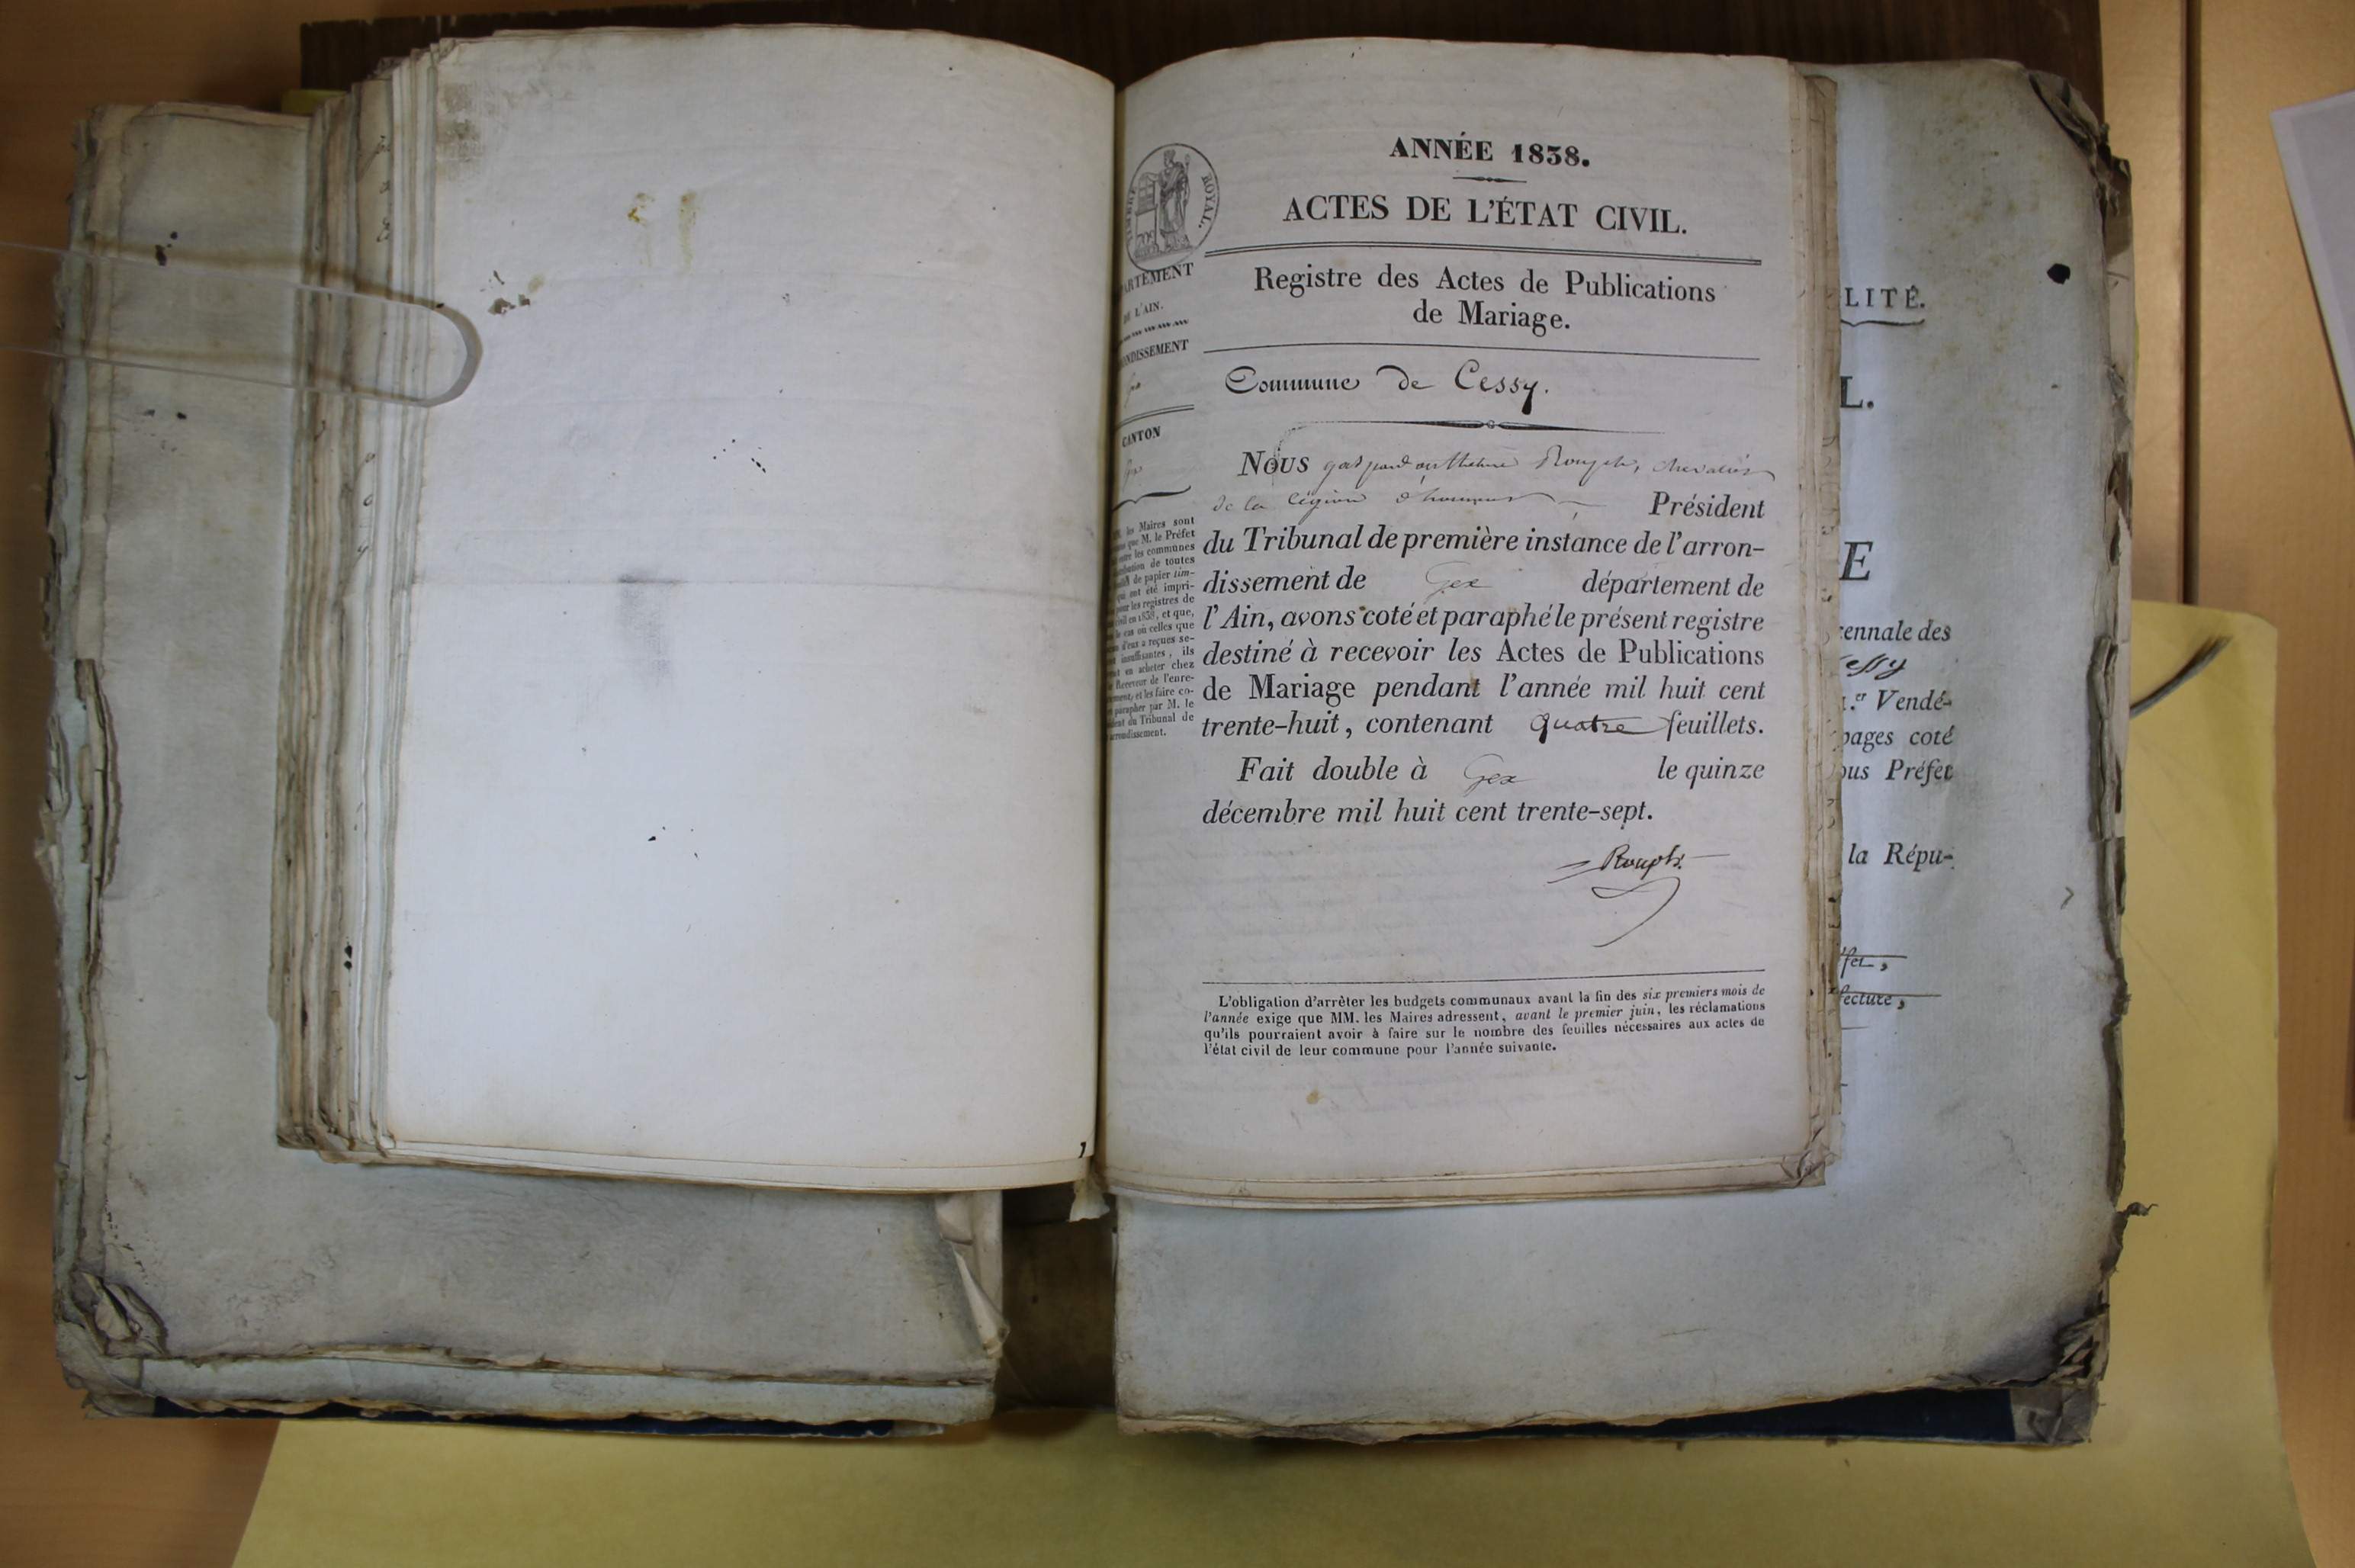 ANNÉE 1838.
ACTES DE L'ÉTAT CIVIL.
Registre des Actes de Publications
de Mariage.
Commune de Cessy.
TIMBRE ROYAL.
ARTEMENT
DE L'AIN.
ONDISSEMENT
CANTON
les Maires sont
que M. le Préfet
les communes
de toutes
de papier tim-
qui ont été impri-
pour les registres de
civil en 1838, et que,
le cas où celles que
d'eux a reçues se-
insuffisantes, ils
en acheter chez
Receveur de l'enre-
et les faire co-
parapher par M. le
du Tribunal de
arrondissement.
NOUS Chevalier
de la légion d'honneur Président
du Tribunal de première instance de l'arron-
dissement de Gex département de
l'Ain, avons coté et paraphé le présent registre
destiné à recevoir les Actes de Publications
de Mariage pendant l'année mil huit cent
trente-huit, contenant quatre feuillets.
Fait double à Gex le quinze
décembre mil huit cent trente-sept.
L'obligation d'arrêter les budgets communaux avant la fin des six premiers mois de
l'année exige que MM. les Maires adressent, avant le premier juin, les réclamations
qu'ils pourraient avoir à faire sur le nombre des feuilles nécessaires aux actes de
l'état civil de leur commune pour l'année suivante.
LITÉ.
L.
E
cennale des
essy
1.er Vendé-
pages coté
ous Préfet
la Répu-
fet,
fecture,